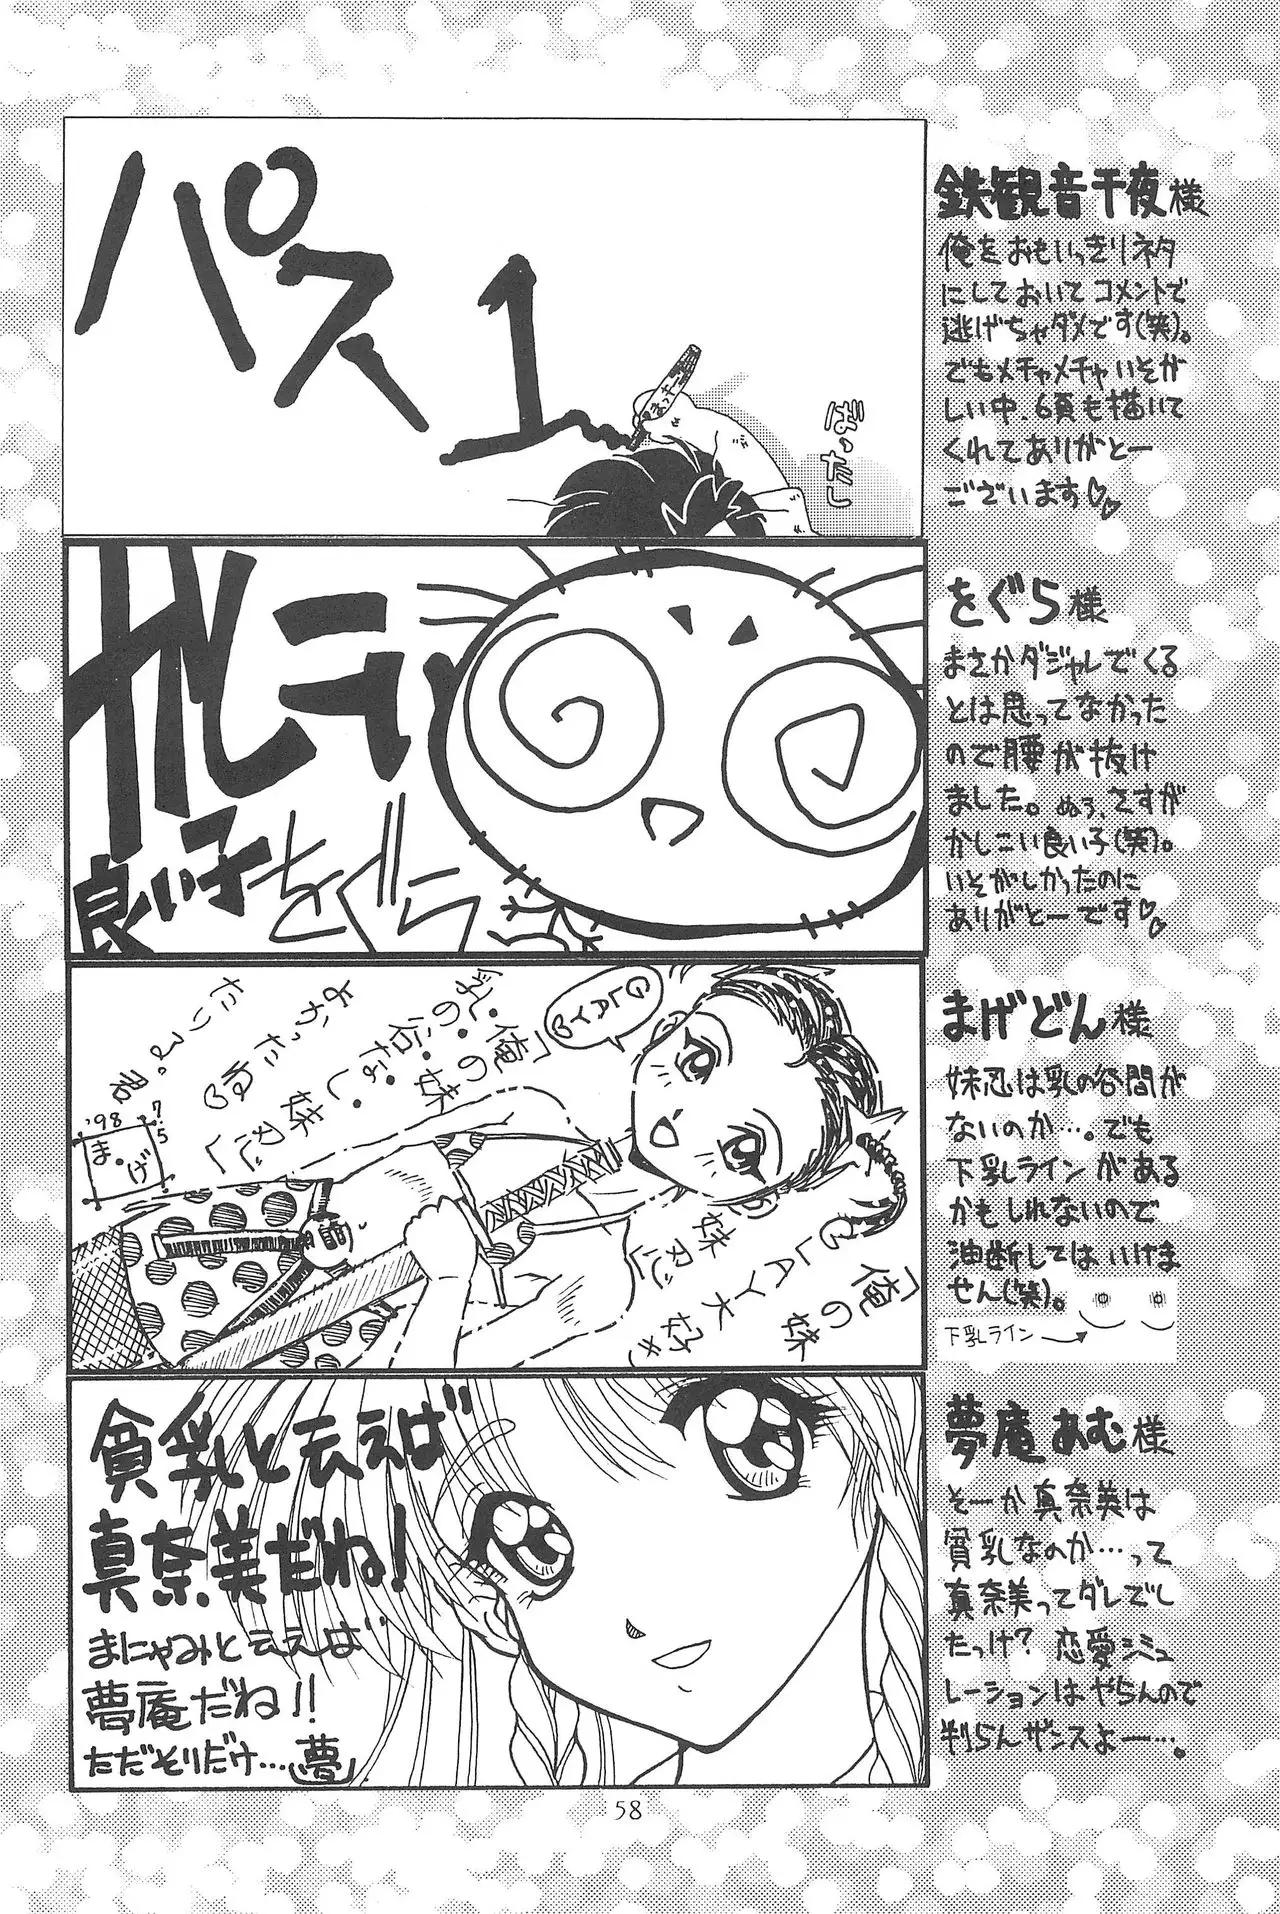 パス1
ばったし
鉄観音千夜様
俺をおもいっきりネタ
にしておいてコメントで
逃げちゃダメです(笑)。
でもメチャメチャいそが
しい中、6頁も描いて
くれてありがとー
ございます♡♡
良い子をぐら
をぐら様
まさかダジャレでくる
とは思ってなかった
ので腰が抜け
ました。ぬぅ、さすが
かしこい良い子(笑)。
いそがしかったのに
ありがとーです♡♡
「俺の妹
乳・俺の妹
の谷なし・妹忍」
よかったね♡
たりる。君
'98 7.5
ま.げ.
GLAY♡
「俺の妹
妹忍」
GLAY大好き
まげどん様
妹忍は乳の谷間が
ないのか…。でも
下乳ラインがある
かもしれないので
油断してはいけま
せん(笑)。
下乳ライン→
貧乳と云えば
真奈美だね!
まにゃみと云えば
夢庵だね!!
ただそりだけ…夢
夢庵あむ様
そーか真奈美は
貧乳なのか…って
真奈美ってダレでし
たっけ?恋愛シミュ
レーションはやらんので
判らんザンスよー…。
58